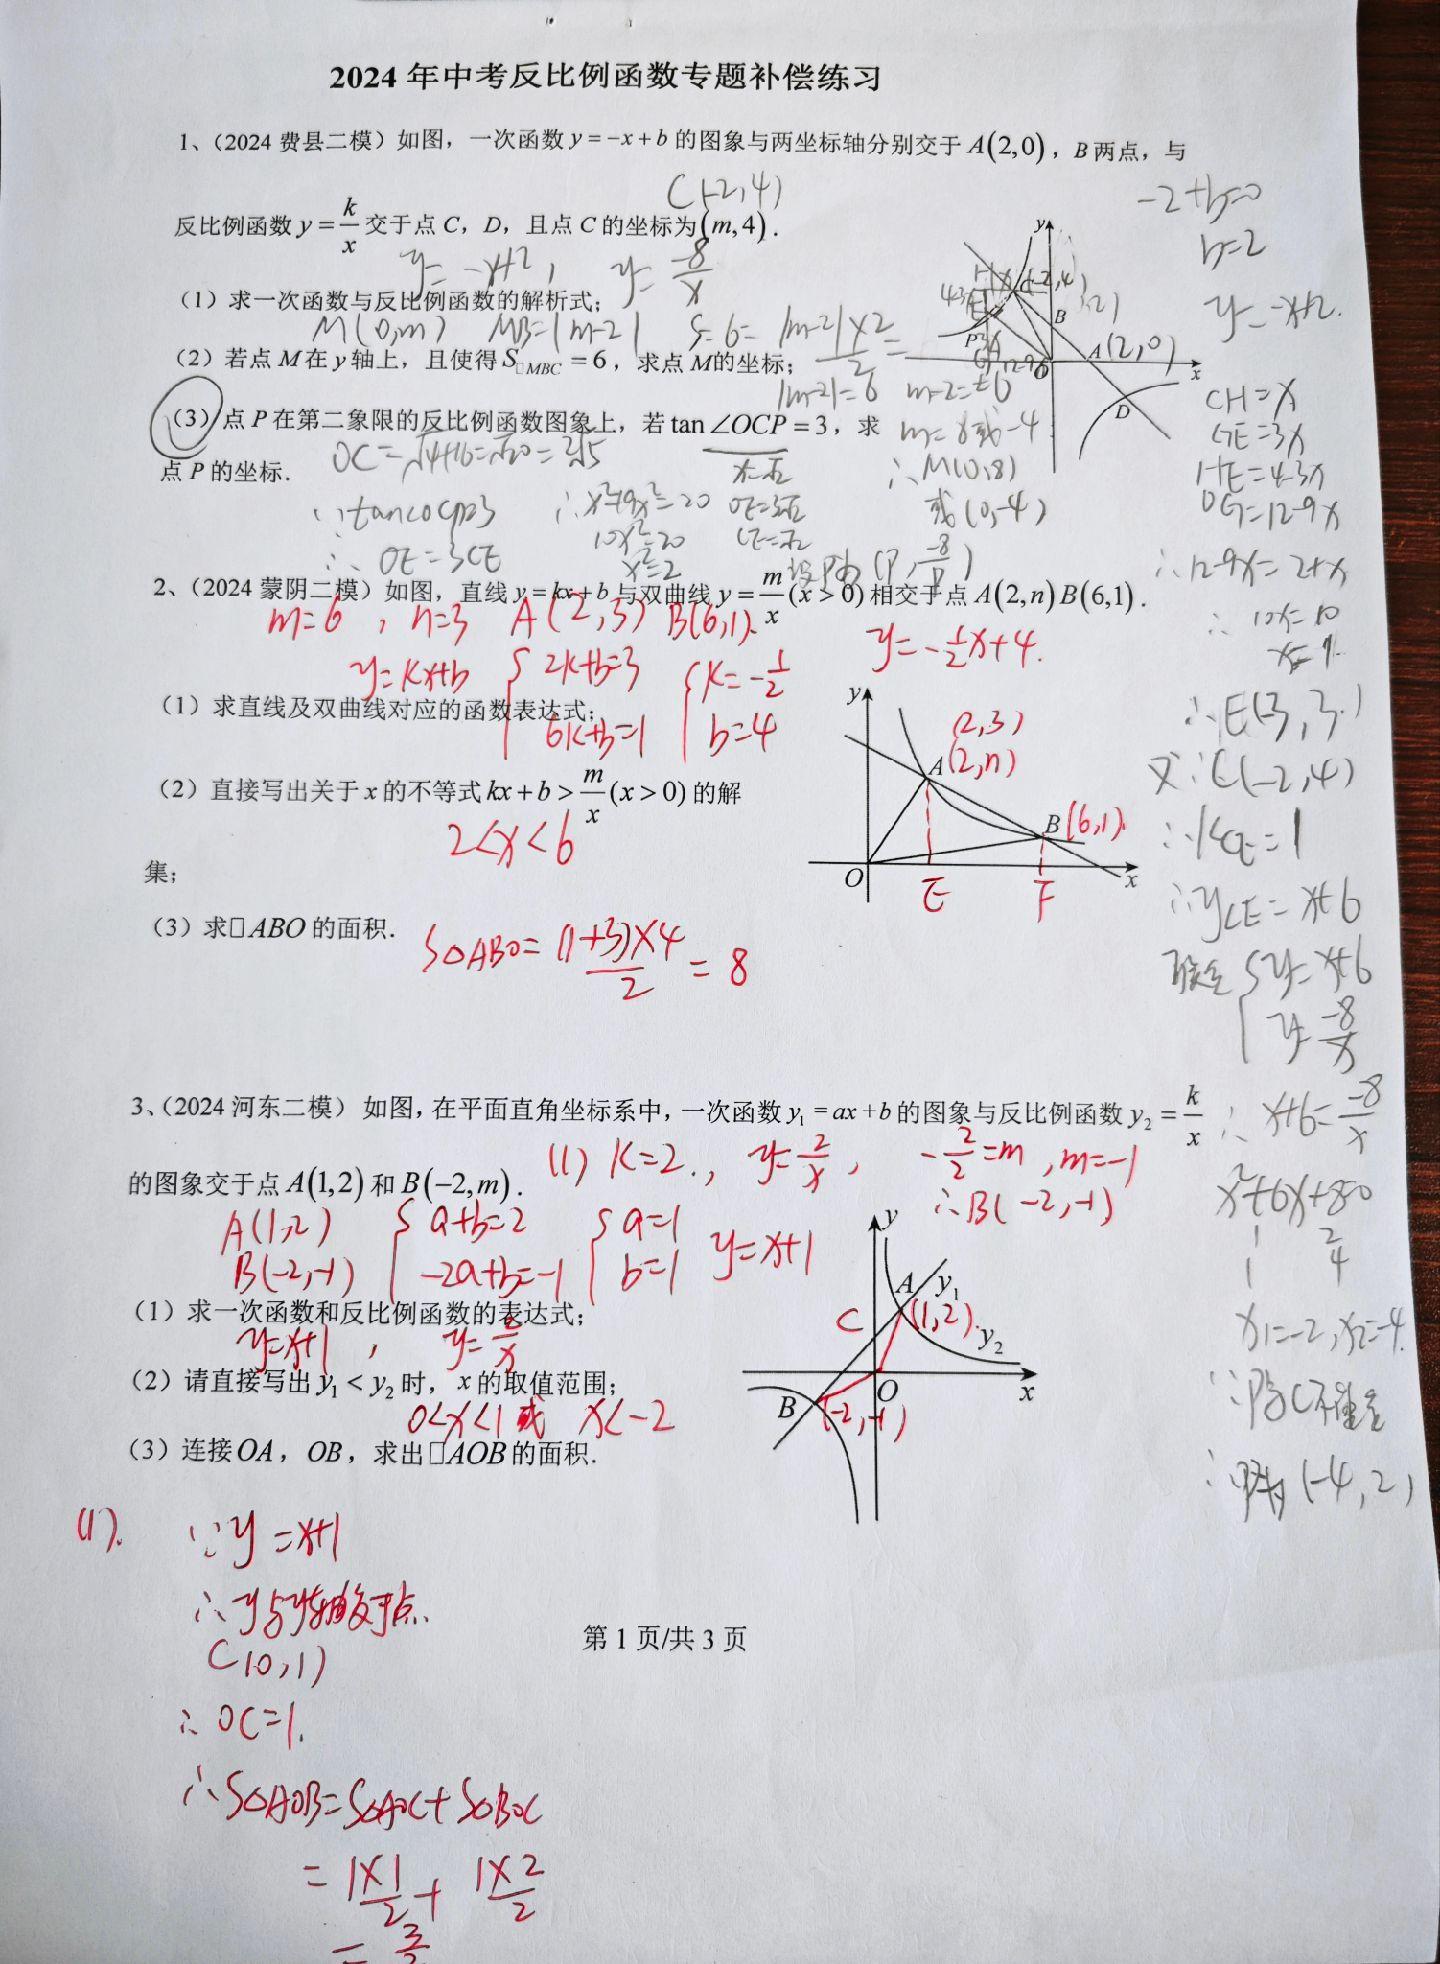 2024年中考反比例函数专题补偿练习
1、（2024费县二模）如图，一次函数 y=-x+b 的图象与两坐标轴分别交于 A(2,0)，B两点，与
C(-2,4)
反比例函数 y=k/x 交于点 C，D，且点 C 的坐标为(m,4).
y=-x+2, y=-8/x
（1）求一次函数与反比例函数的解析式；
M(0,m) MB=|m-2| S=6=|m-2|×2/2=
（2）若点 M 在 y 轴上，且使得 S□MBC=6，求点 M的坐标；
|m-2|=6 m-2=±6
（3）点 P 在第二象限的反比例函数图象上，若 tan∠OCP=3，求
m=8或-4
点 P 的坐标.
OC=√4+16=√20=2√5
x=√2
∴M(0,8)
或(0,-4)
∵tan∠OCP=3
∴OE=3CE
∴x²+9x²=20
10x²=20
x²=2
OE=3√2
CE=√2
设P为(P,-8/P)
y
C(-2,4)
B
A(2,0)
P
O
x
D
-2+b=0
b=2
y=-x+2.
CH=x
GE=3x
HE=4-3x
OG=12-9x
∴12-9x=2+x
∴10x=10
x=1.
∴E(-3,3)
又∵C(-2,4)
∴kCE=1
∴yCE=x+6
联立{y=x+6
y=-8/x
∴x+6=-8/x
x²+6x+8=0
1 2
1 4
x1=-2,x2=-4.
∵P与C不重合
∴P为(-4,2)
2、（2024蒙阴二模）如图，直线 y=kx+b 与双曲线 y=m/x(x>0) 相交于点 A(2,n)B(6,1).
m=6, n=3 A(2,3) B(6,1).
y=-1/2x+4.
y=kx+b {2k+b=3 {k=-1/2
（1）求直线及双曲线对应的函数表达式；
6k+b=1 b=4
（2）直接写出关于 x 的不等式 kx+b>m/x(x>0) 的解
2<x<6
集；
（3）求□ABO 的面积.
S△ABO=(1+3)×4/2=8
y
(2,3)
A(2,n)
B(6,1).
O
E
F
x
3、（2024河东二模） 如图，在平面直角坐标系中，一次函数 y₁=ax+b 的图象与反比例函数 y₂=k/x
的图象交于点 A(1,2) 和 B(-2,m).
(1) k=2., y=2/x, -2/2=m, m=-1
∴B(-2,-1)
A(1,2) {a+b=2 {a=1 y=x+1
B(-2,-1) -2a+b=-1 b=1
（1）求一次函数和反比例函数的表达式；
y=x+1, y=2/x
（2）请直接写出 y₁<y₂ 时，x 的取值范围；
0<x<1或 x<-2
（3）连接 OA，OB，求出□AOB 的面积.
y
A
y₁
C
(1,2).
y₂
O
x
B
(-2,-1)
(1).
∵y=x+1
∴y与y轴交于点.
C(0,1)
∴OC=1.
∴S△AOB=S△AOC+S△BOC
=1×1/2+1×2/2
=3/2
第 1 页/共 3 页